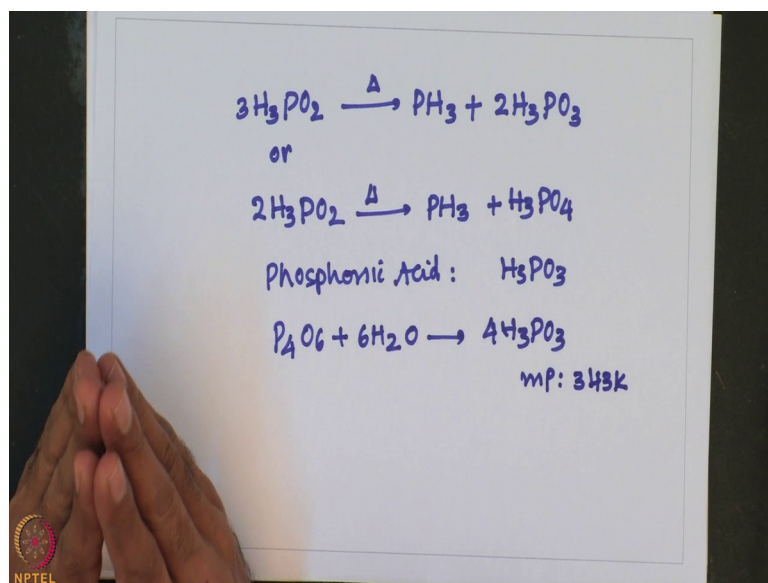 3H₃PO₂ —Δ→ PH₃ + 2H₃PO₃
or
2H₃PO₂ —Δ→ PH₃ + H₃PO₄
Phosphonic Acid : H₃PO₃
P₄O₆ + 6H₂O → 4H₃PO₃
mp: 343K
NPTEL